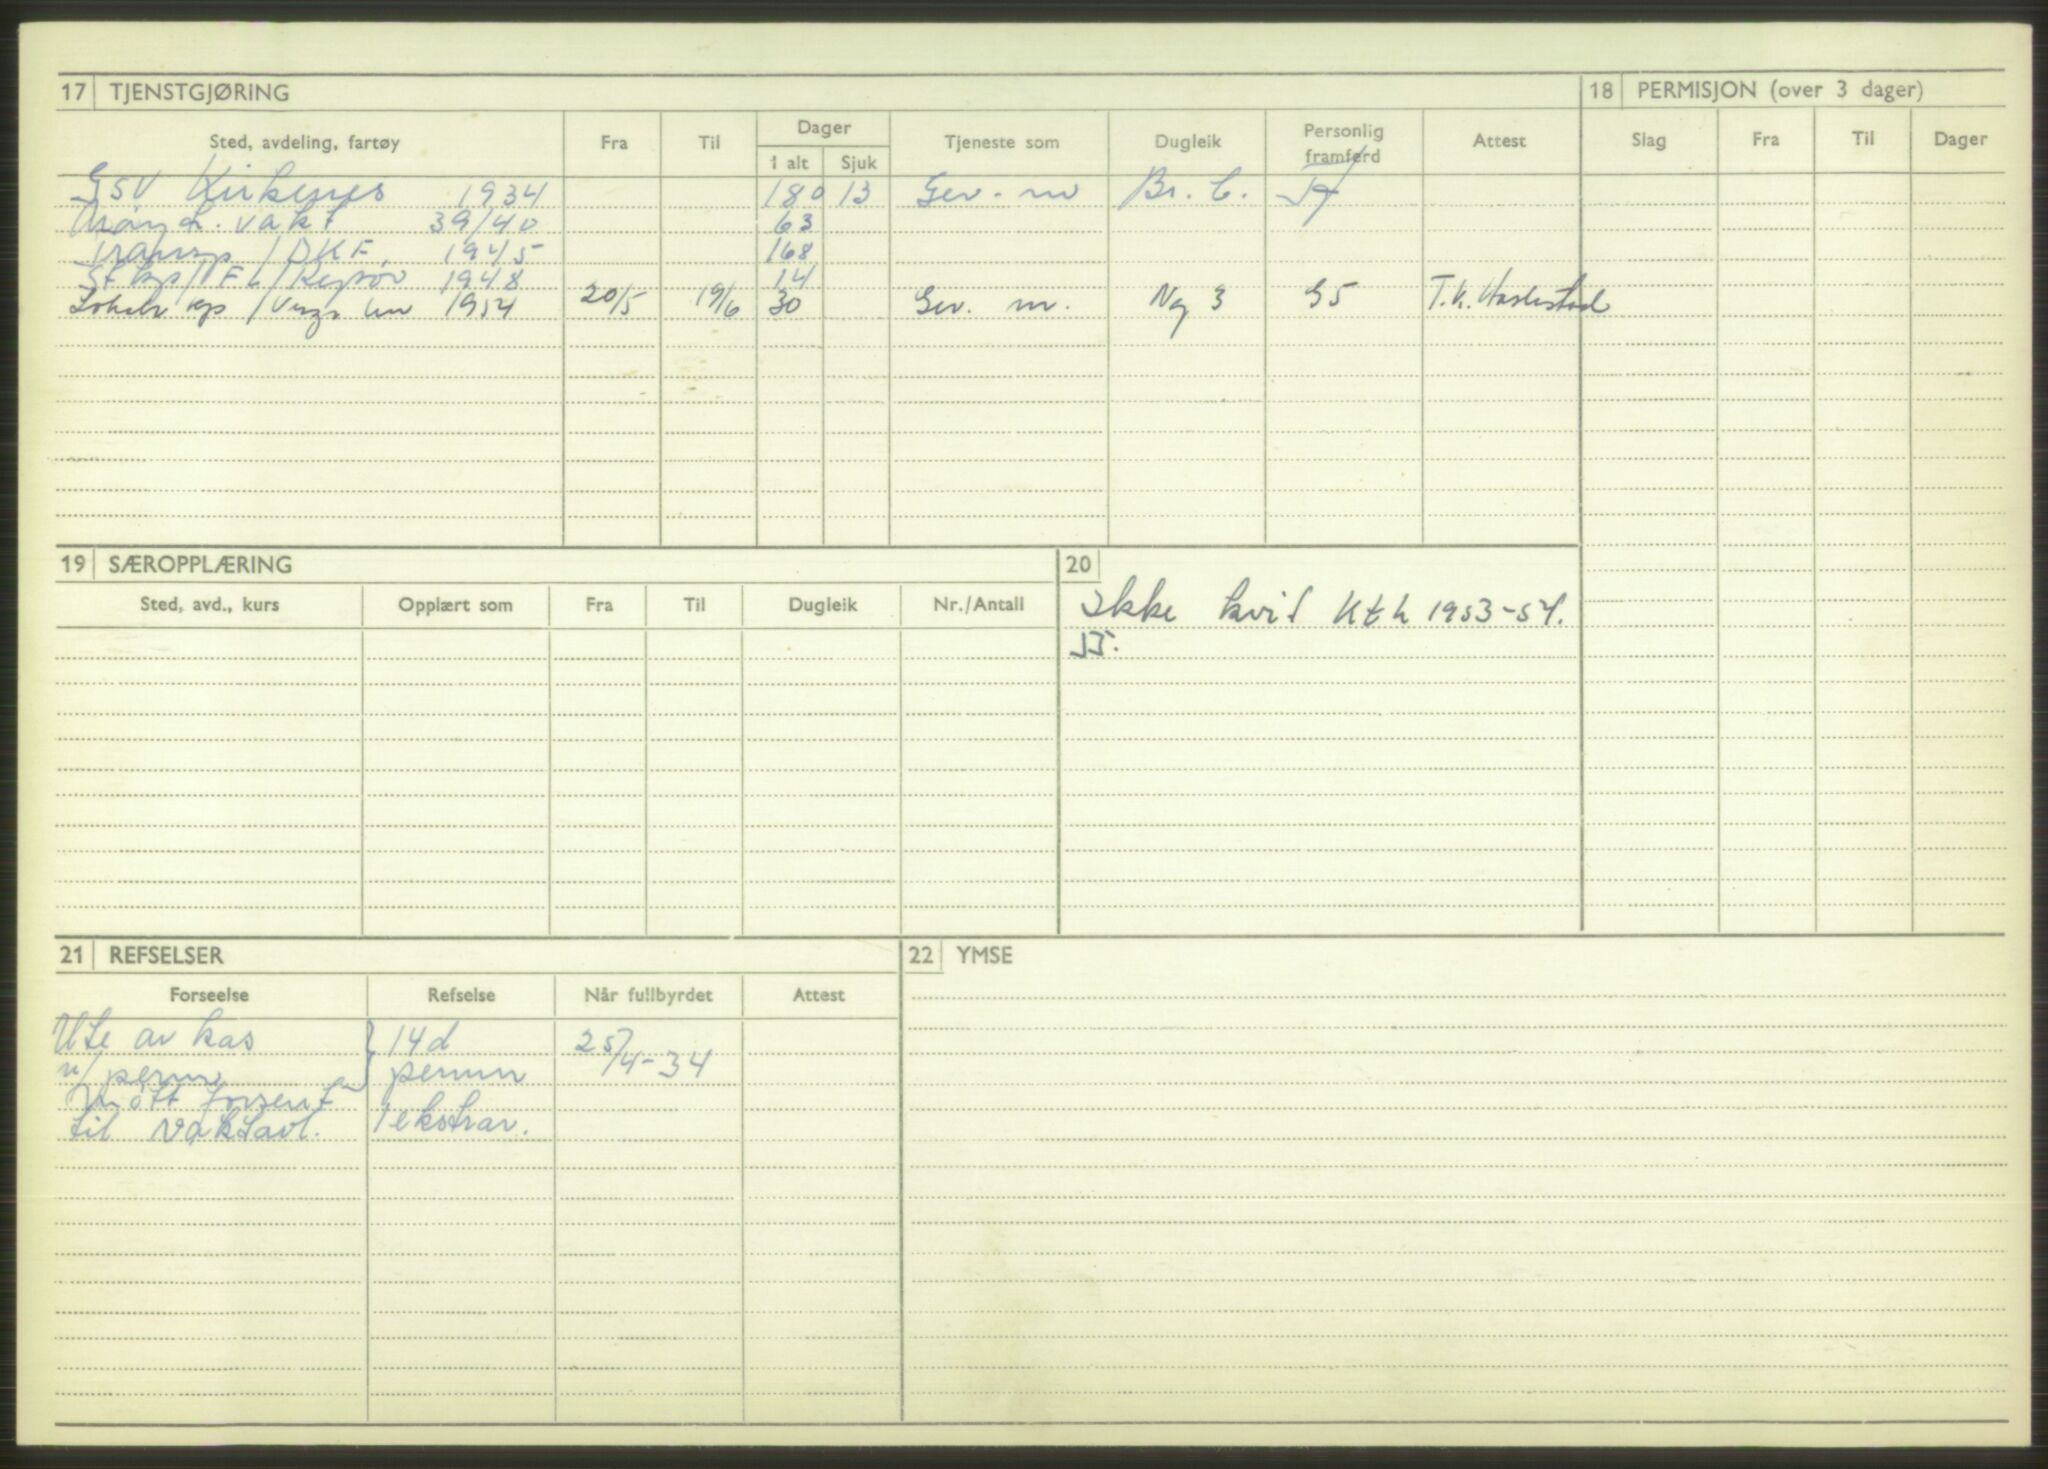 17 TJENSTGJØRING
18 PERMISJON (over 3 dager)
Sted, avdeling, fartøy Fra Til Dager Tjeneste som Dugleik Personlig framferd Attest
I alt Sjuk
Slag Fra Til Dager
GSV Kirkenes 1934 180 13 Gev. m Br. C.
vakt 39/40 63
/DKF. 1945 168
1948 14
Lokalv 1954 20/5 19/6 30 Gev. m. Ng 3 G5 T.K.
19 SÆROPPLÆRING
20
Sted, avd., kurs Opplært som Fra Til Dugleik Nr./Antall
Ikke kvit Kth 1953-54.
55.
21 REFSELSER
22 YMSE
Forseelse Refselse Når fullbyrdet Attest
Ute av kas } 14 d 25/4-34
u/perm permn
Møtt forsent
til vaktavl. 1 ekstrav.